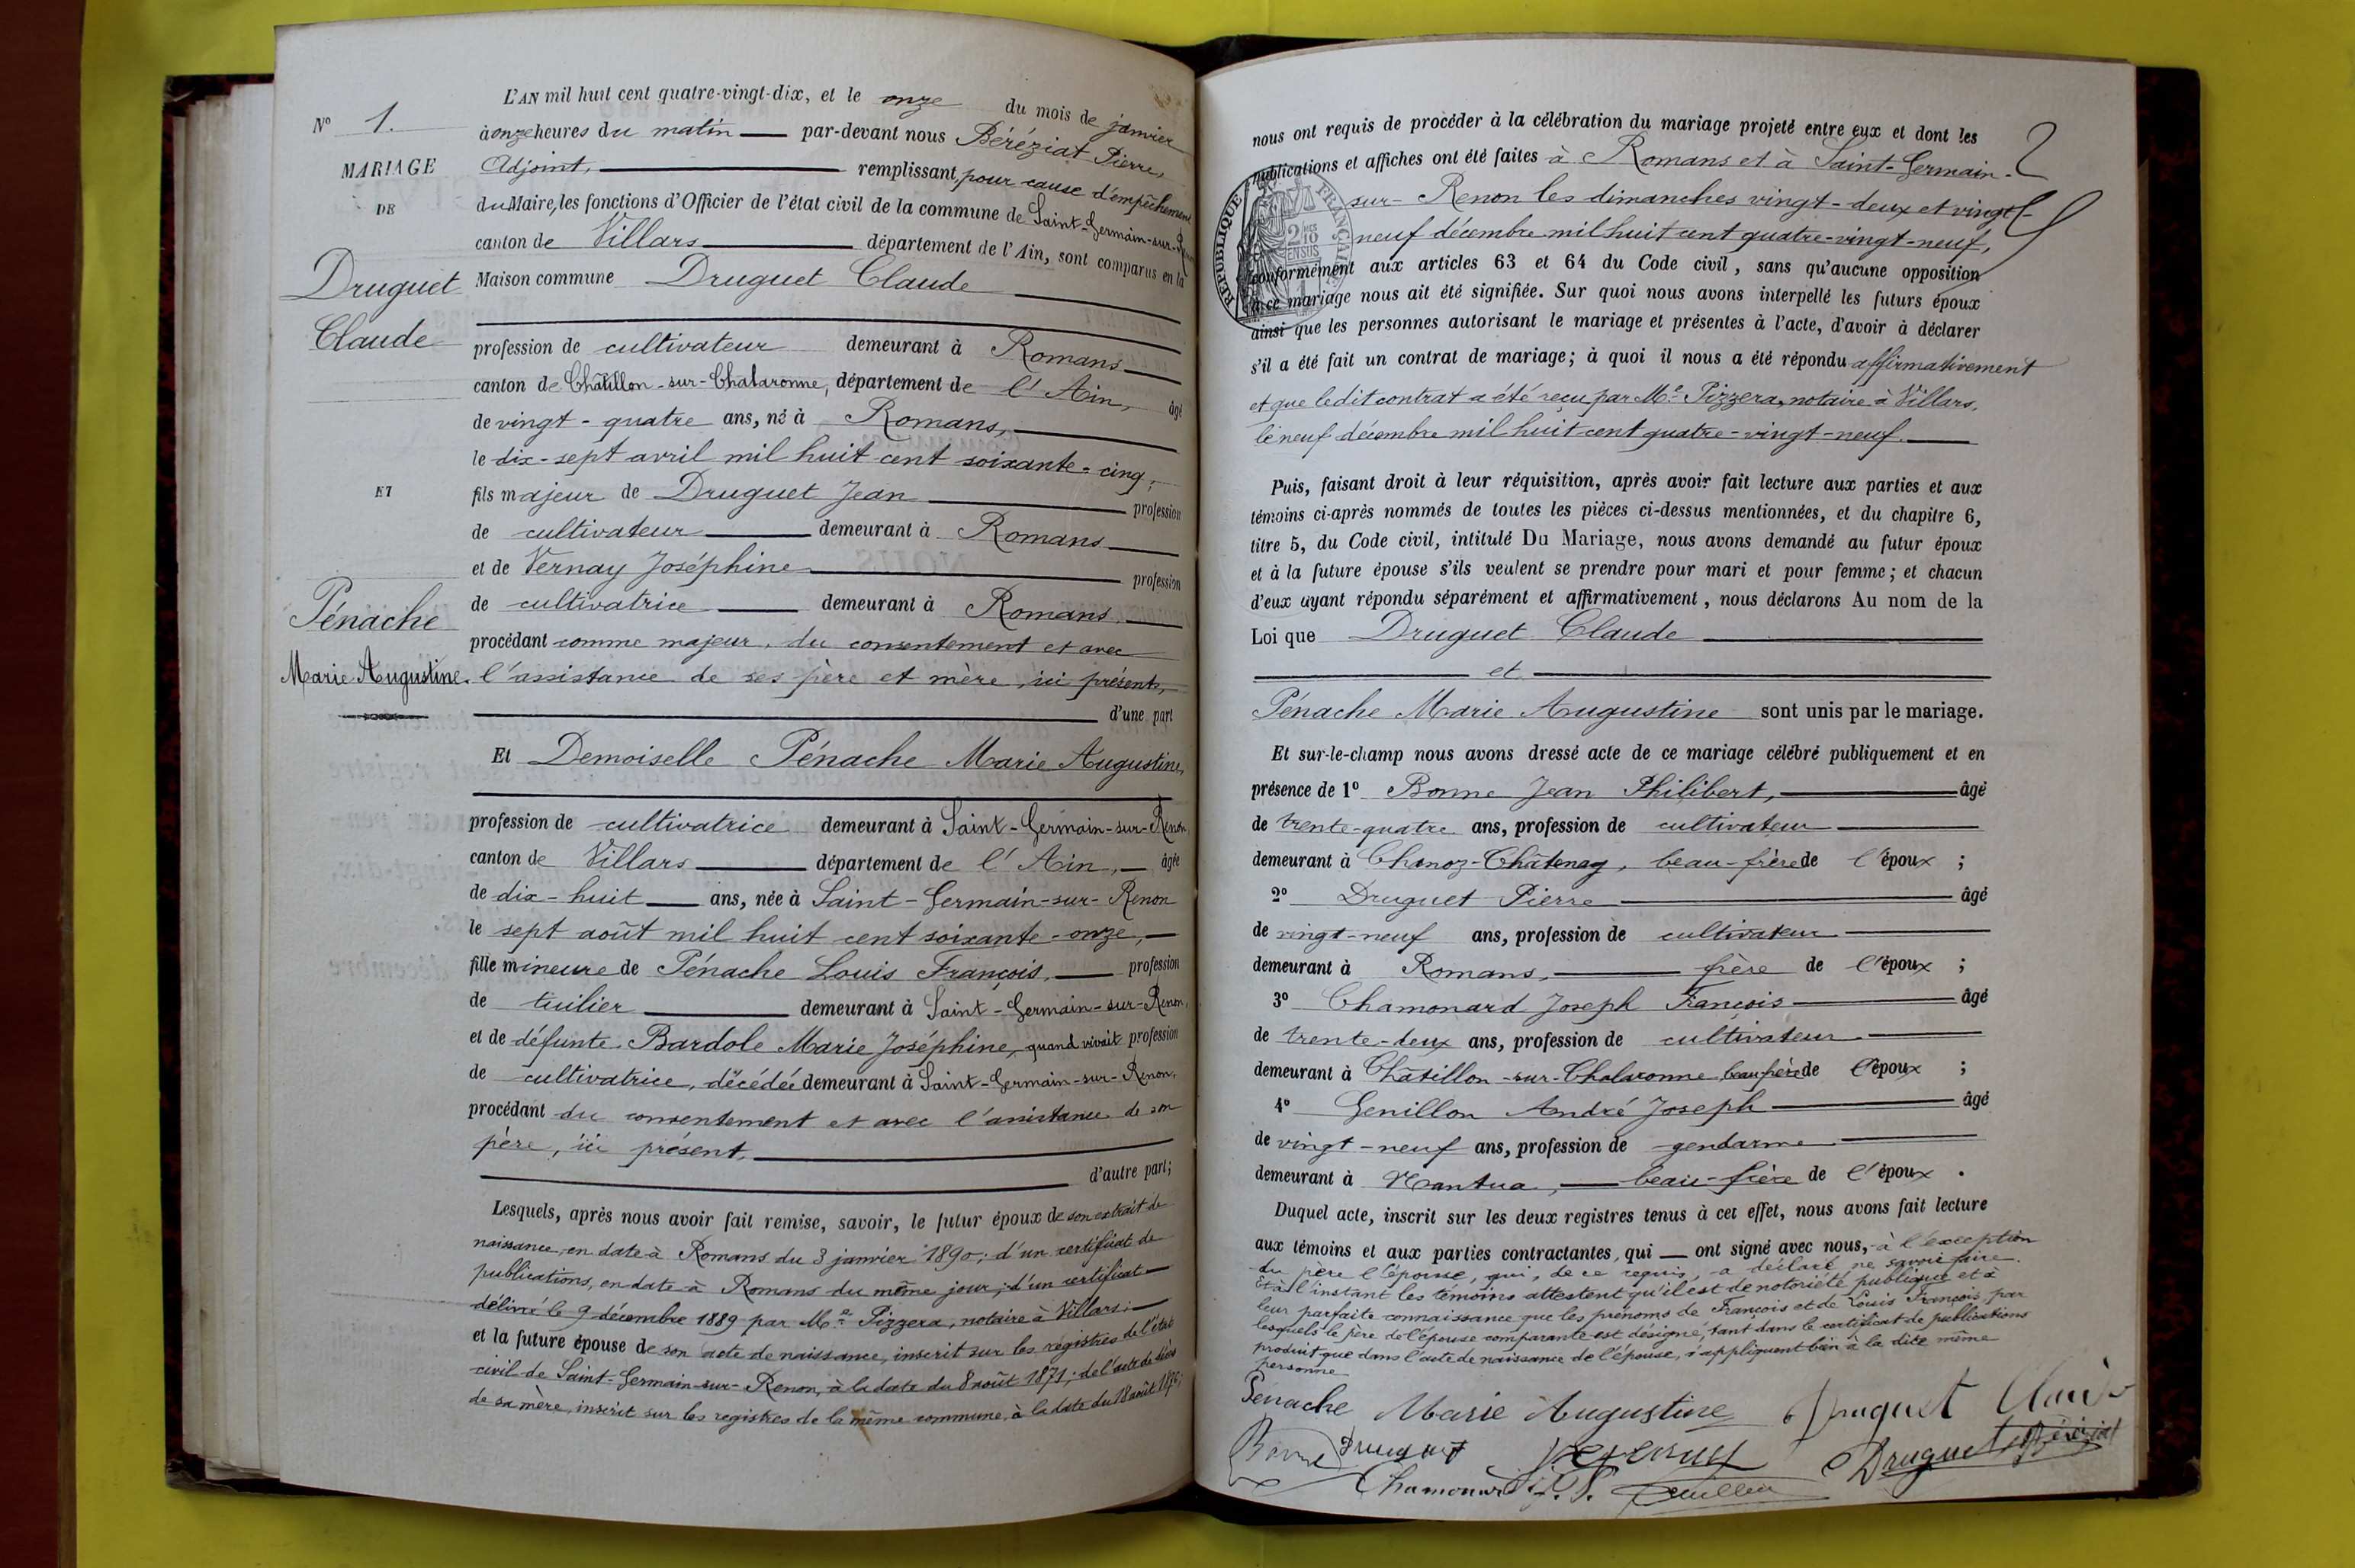 L'AN mil huit cent quatre-vingt-dix, et le onze du mois de janvier
N° 1.
à onze heures du matin — par-devant nous Béréziat Pierre,
MARIAGE
Adjoint, — remplissant, pour cause d'empêchement
DE
du Maire, les fonctions d'Officier de l'état civil de la commune de Saint-Germain-sur-Renon
canton de Villars — département de l'Ain, sont comparus en la
Druguet
Maison commune Druguet Claude
Claude
profession de cultivateur demeurant à Romans
canton de Châtillon-sur-Chalaronne, département de l'Ain, âgé
de vingt-quatre ans, né à Romans,
le dix-sept avril mil huit cent soixante-cinq,
ET
fils majeur de Druguet Jean — profession
de cultivateur — demeurant à Romans
et de Vernay Joséphine — profession
de cultivatrice — demeurant à Romans,
Pénache
procédant comme majeur, du consentement et avec
Marie Augustine.
l'assistance de ses père et mère, ici présents,
d'une part
Et Demoiselle Pénache Marie Augustine,
profession de cultivatrice demeurant à Saint-Germain-sur-Renon
canton de Villars — département de l'Ain, — âgée
de dix-huit — ans, née à Saint-Germain-sur-Renon
le sept août mil huit cent soixante-onze, —
fille mineure de Pénache Louis François, — profession
de tuilier — demeurant à Saint-Germain-sur-Renon,
et de défunte Bardole Marie Joséphine, quand vivait profession
de cultivatrice, décédée demeurant à Saint-Germain-sur-Renon,
procédant du consentement et avec l'assistance de son
père, ici présent,
d'autre part;
Lesquels, après nous avoir fait remise, savoir, le futur époux de son extrait de
naissance, en date à Romans du 3 janvier 1890; d'un certificat de
publications, en date à Romans du même jour; d'un certificat
délivré le 9 décembre 1889 par Me Pizzera, notaire à Villars; —
et la future épouse de son acte de naissance, inscrit sur les registres de l'état
civil de Saint-Germain-sur-Renon, à la date du 8 août 1871; de l'acte de décès
de sa mère, inscrit sur les registres de la même commune, à la date du 18 août
nous ont requis de procéder à la célébration du mariage projeté entre eux et dont les
publications et affiches ont été faites à Romans et à Saint-Germain-
sur-Renon les dimanches vingt-deux et vingt-
neuf décembre mil huit cent quatre-vingt-neuf,
RÉPUBLIQUE FRANÇAISE
conformément aux articles 63 et 64 du Code civil, sans qu'aucune opposition
à ce mariage nous ait été signifiée. Sur quoi nous avons interpellé les futurs époux
ainsi que les personnes autorisant le mariage et présentes à l'acte, d'avoir à déclarer
s'il a été fait un contrat de mariage; à quoi il nous a été répondu affirmativement
et que le dit contrat a été reçu par Me Pizzera, notaire à Villars,
le neuf décembre mil huit cent quatre-vingt-neuf.
Puis, faisant droit à leur réquisition, après avoir fait lecture aux parties et aux
témoins ci-après nommés de toutes les pièces ci-dessus mentionnées, et du chapitre 6,
titre 5, du Code civil, intitulé Du Mariage, nous avons demandé au futur époux
et à la future épouse s'ils veulent se prendre pour mari et pour femme; et chacun
d'eux ayant répondu séparément et affirmativement, nous déclarons Au nom de la
Loi que Druguet Claude
et
Pénache Marie Augustine sont unis par le mariage.
Et sur-le-champ nous avons dressé acte de ce mariage célébré publiquement et en
présence de 1° Bonne Jean Philibert, — âgé
de trente-quatre ans, profession de cultivateur
demeurant à Chanoz-Châtenay, beau-frère de l'époux ;
2° Druguet Pierre — âgé
de vingt-neuf ans, profession de cultivateur
demeurant à Romans, — frère de l'époux ;
3° Chamonard Joseph François — âgé
de trente-deux ans, profession de cultivateur
demeurant à Châtillon-sur-Chalaronne, beau-frère de l'époux ;
4° Genillon André Joseph — âgé
de vingt-neuf ans, profession de gendarme
demeurant à Nantua, — beau-frère de l'époux .
Duquel acte, inscrit sur les deux registres tenus à cet effet, nous avons fait lecture
aux témoins et aux parties contractantes, qui — ont signé avec nous, à l'exception
du père l'épouse, qui, de ce requis, a déclaré ne savoir faire.
Et à l'instant les témoins attestent qu'il est de notoriété publique et à
leur parfaite connaissance que les prénoms de François et de Louis François, par
lesquels le père de l'épouse comparante est désigné, tant dans le certificat de publications
produit que dans l'acte de naissance de l'épouse, s'appliquent bien à la dite même
personne
Pénache Marie Augustine Druguet Claude
Bonne Druguet Druguet Béréziat
Chamonard J. F. Genillon